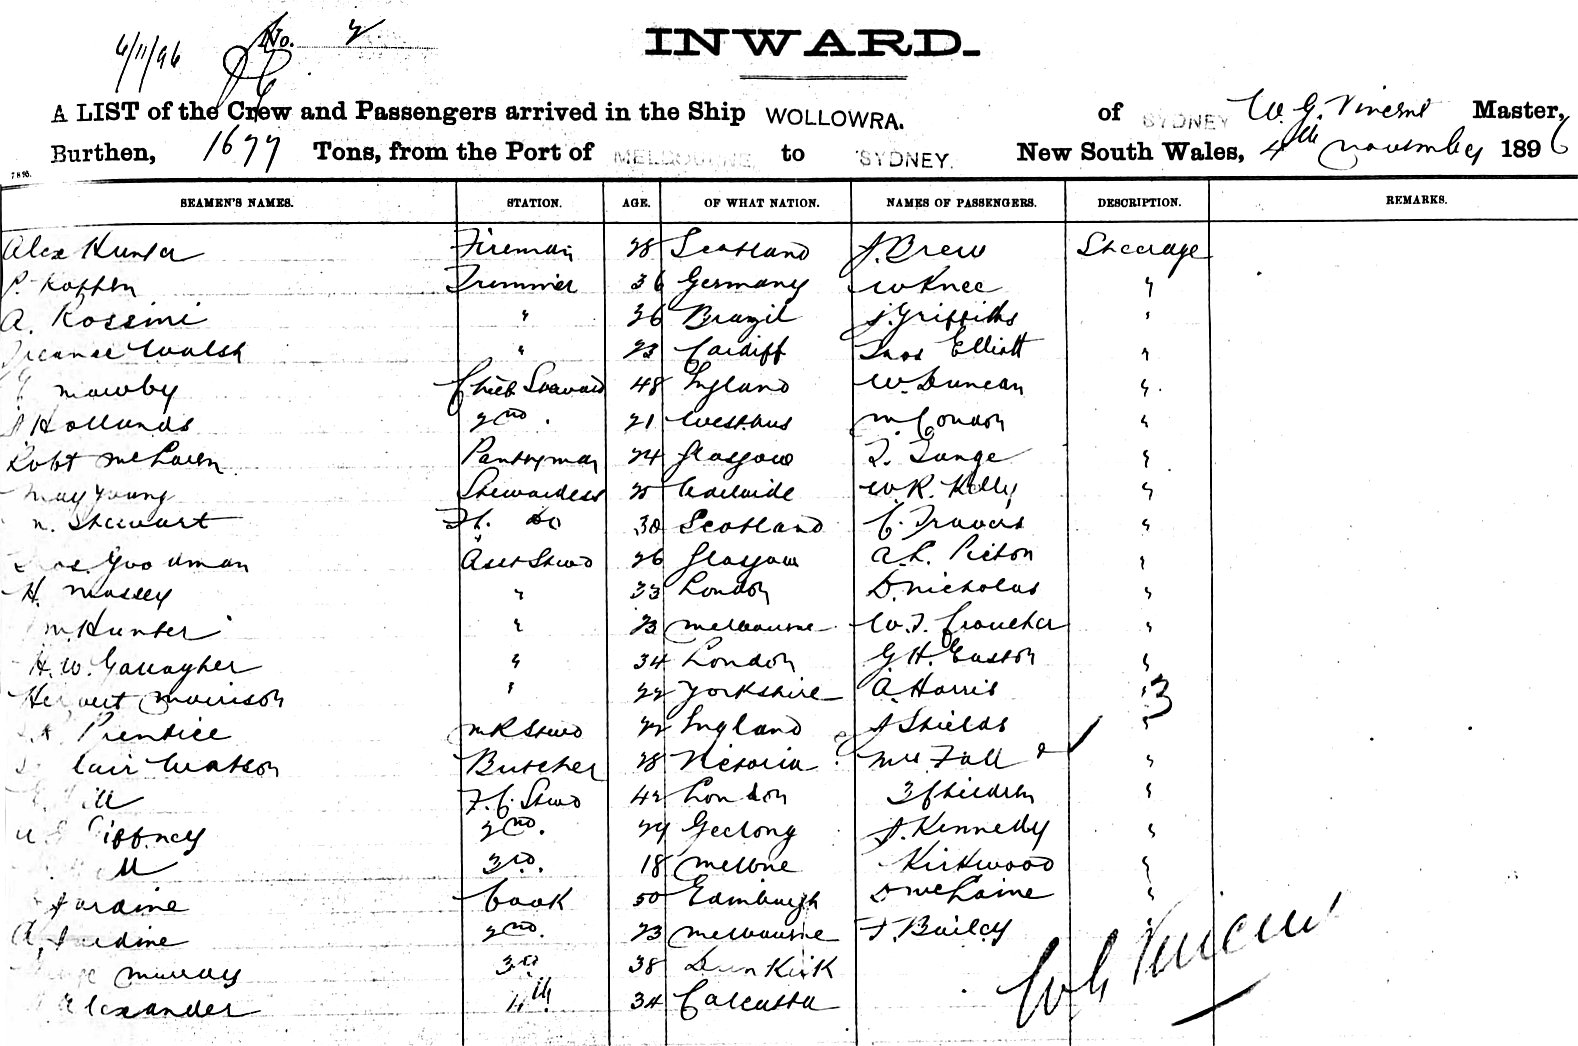 6/11/96 No. 2
INWARD.
A LIST of the Crew and Passengers arrived in the Ship WOLLOWRA. of SYDNEY W. G. Vincent Master,
Burthen, 1677 Tons, from the Port of MELBOURNE to SYDNEY. New South Wales, 4th November 1896
SEAMEN'S NAMES. STATION. AGE. OF WHAT NATION. NAMES OF PASSENGERS. DESCRIPTION. REMARKS.
Alex Hunter Fireman 28 Scotland J. Brew Steerage
P. Koppen Trimmer 36 Germany W Knee "
A. Rossini " 26 Brazil J. Griffiths "
Walsh " 23 Cardiff Thos Elliott "
Mawby Chief Steward 48 England W. Duncan "
Hollands 2nd " 21 West Aus M. Condon "
Robt McLaren Pantryman 24 Glasgow T. Tange "
May Young Stewardess 25 Adelaide W. R. Kelly "
N. Stewart do 30 Scotland C. Travers "
Goodman Asst Stwd 26 Glasgow A. L. Picton "
H. Massey " 33 London D. Nicholas "
Wm Hunter " 23 Melbourne W. T. Croucher "
H. W. Gallagher " 34 London G. H. Easton "
Herbert Morrison " 22 Yorkshire A Harris "
Prentice Stwd 22 England J Shields "
Watson Butcher 28 Victoria Mrs Fall & "
F. C. Stwd 42 London 3 Children "
Giffney 2nd. 29 Geelong J. Kennedy "
3rd. 18 Melbne Kirkwood "
Jardine Cook 50 Edinburgh D McLaine "
A, Jardine 2nd. 23 Melbourne F. Bailey "
Murray 3rd 38 Dunkirk
Alexander 4th 34 Calcutta
W G Vincent